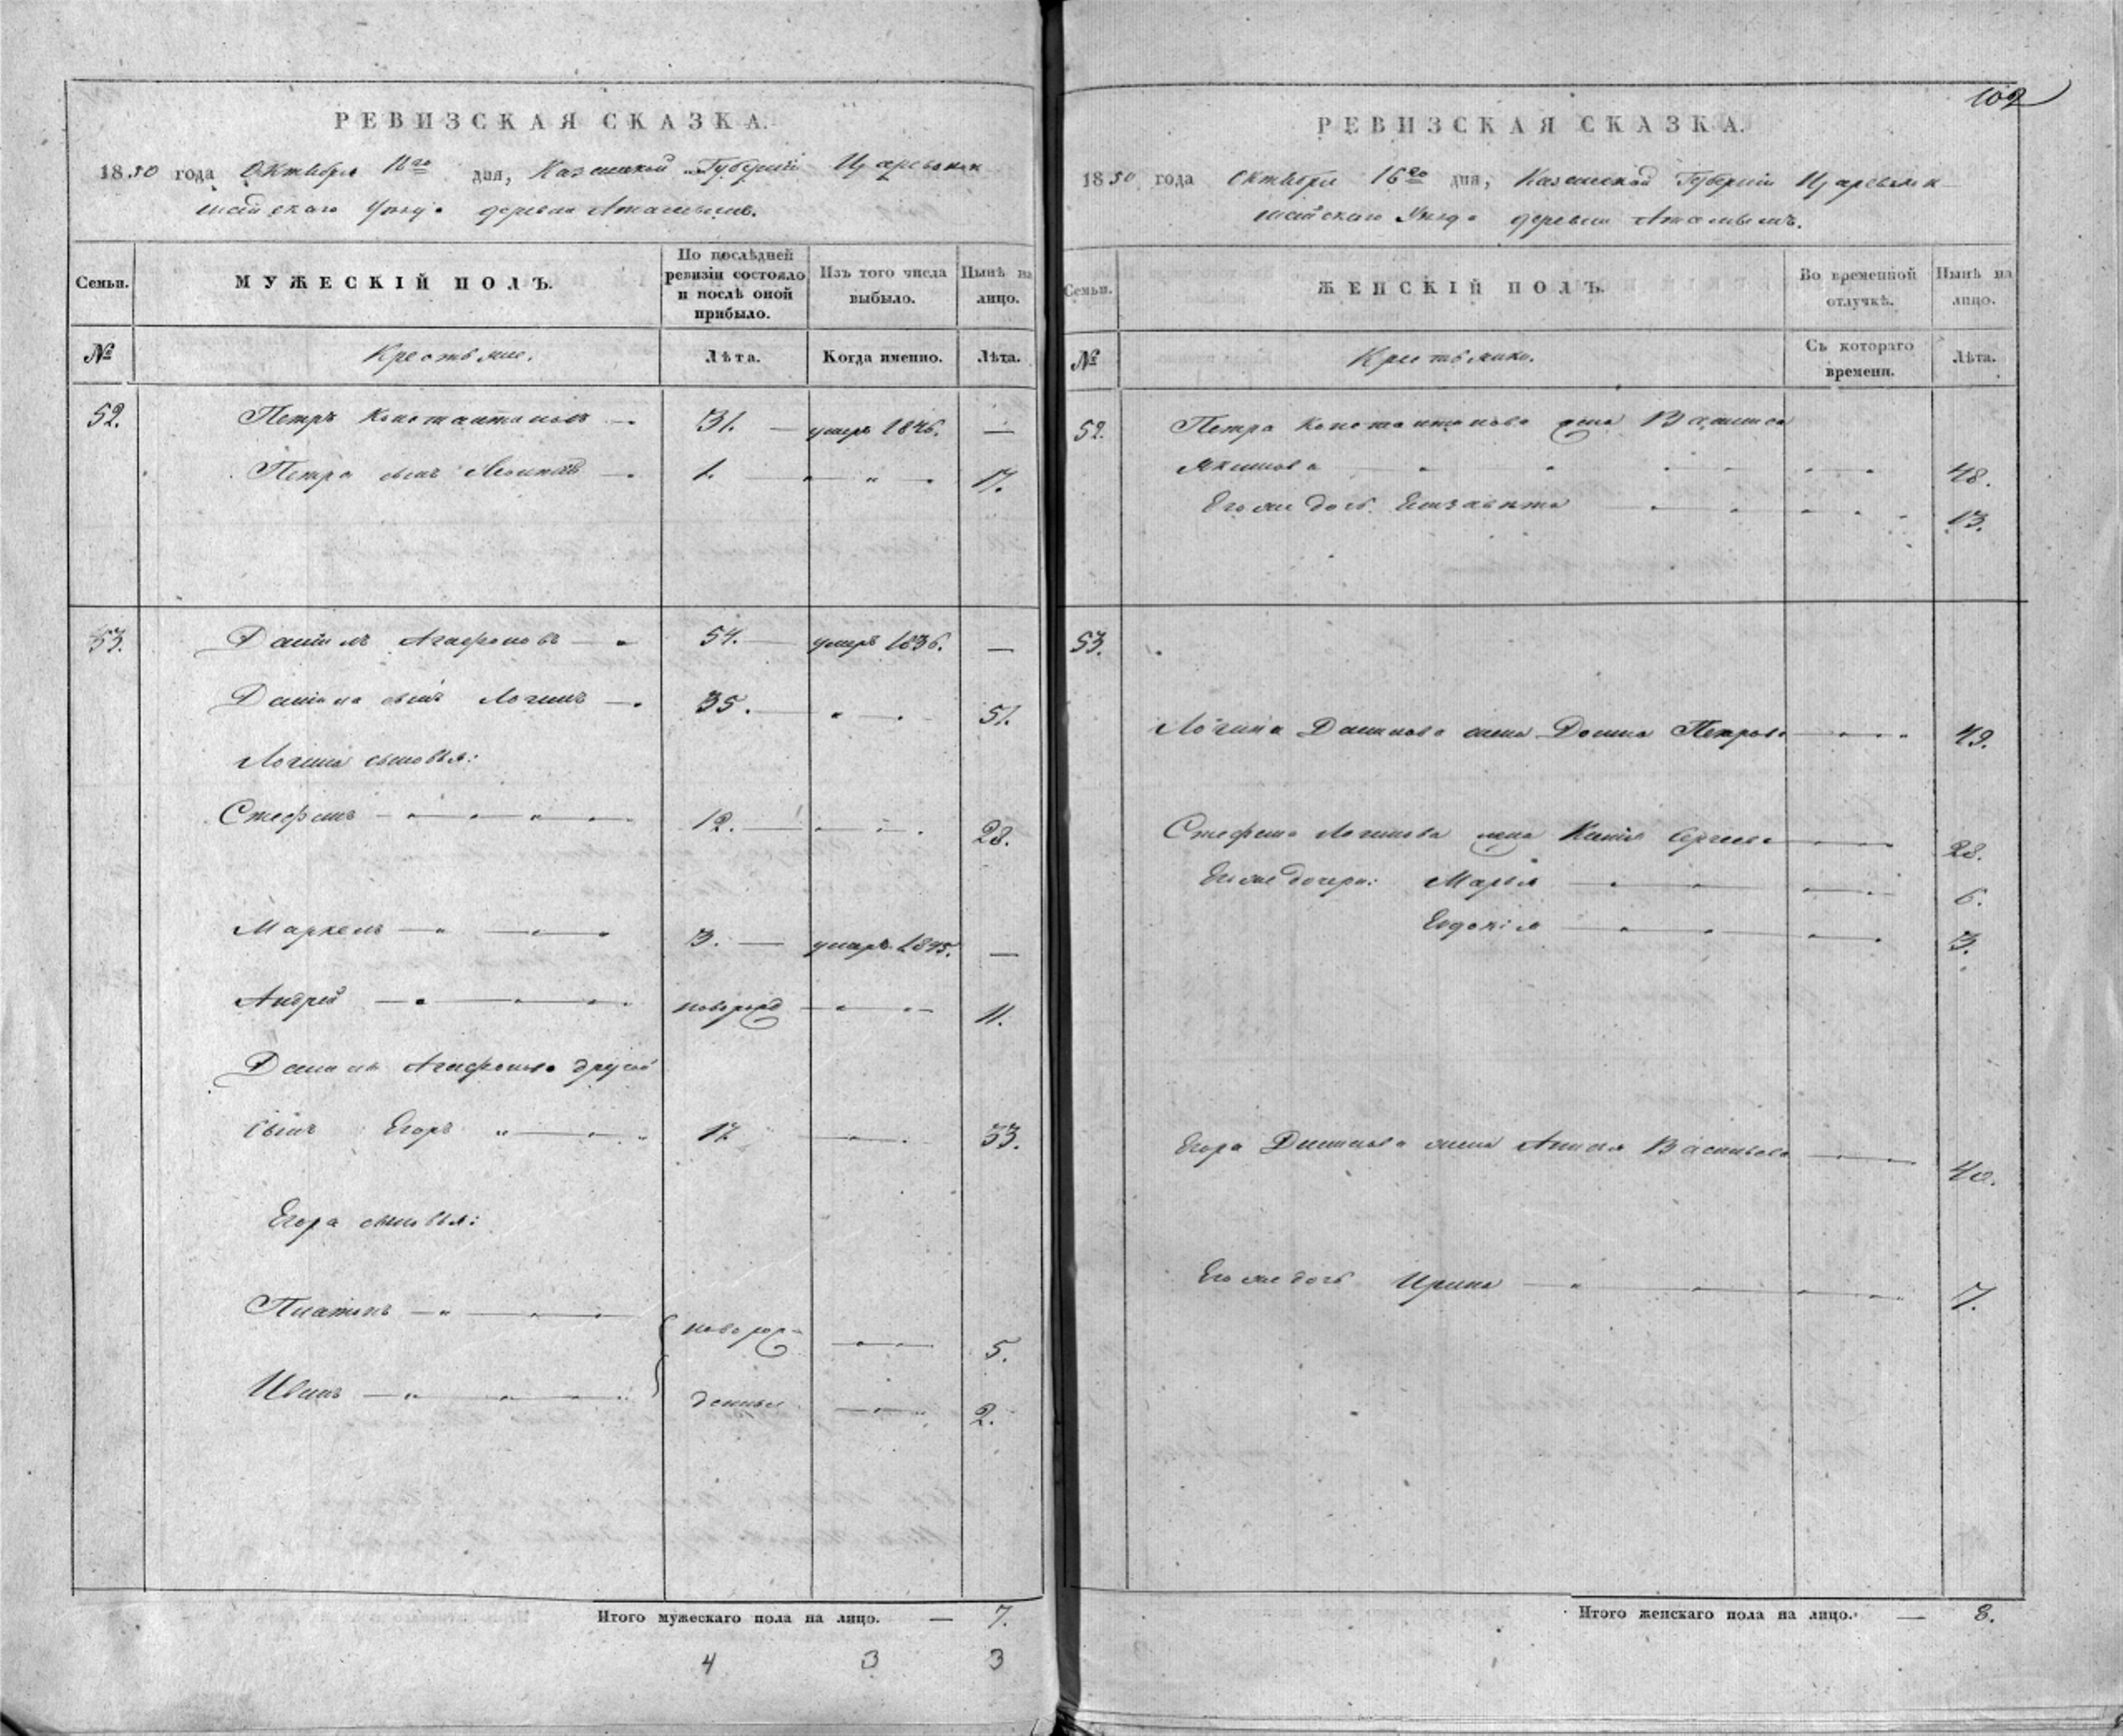 РЕВИЗСКАЯ СКАЗКА.
1850 года Октября 16го дня, Казанской Губерніи Царевокок
шайскаго Уезда деревни
Семьи.
МУЖЕСКІЙ ПОЛЪ.
По послѣдней ревизіи состояло и послѣ оной прибыло.
Изъ того числа выбыло.
Нынѣ на лицо.
№
Крестьяне.
Лѣта.
Когда именно.
Лѣта.
52. Петръ Константиновъ — 31. — умеръ 1846. —
Петра сынъ 1. — " — 17.
53. Данилъ Агафоновъ — 54. — умеръ 1836. —
Данила сынъ Логинъ — 35. — " — 51.
Логина сыновья:
Стефанъ — 12. — 28.
Маркелъ — " — 3. — умеръ 1845. —
Андрей — новорожд — 11.
Данила Агафонова другой
сынъ Егоръ " — 17 — 33.
Егора сыновья:
Платонъ — " — новорож- — 5.
Иванъ — " — денные — 2.
Итого мужескаго пола на лицо. — 7.
4 3 3
102
РЕВИЗСКАЯ СКАЗКА.
1850 года Октября 16го дня, Казанской Губерніи Царевокок
шайскаго Уезда деревни
Семьи.
ЖЕНСКІЙ ПОЛЪ.
Во временной отлучкѣ.
Нынѣ на лицо.
№
Крестьянки.
Съ котораго времени.
Лѣта.
52. Петра Константинова жена
Якимова — 48.
Его же дочь Елизавета — 13.
53.
Логина Данилова жена Домна Петрова — 49.
Стефана Логинова жена Сергеева — 28.
Его же дочери: Марья — 6.
Евдокія — 3.
Егора Данилова жена Васильева — 40.
Его же дочь Ирина — " — 7.
Итого женскаго пола на лицо. — 8.